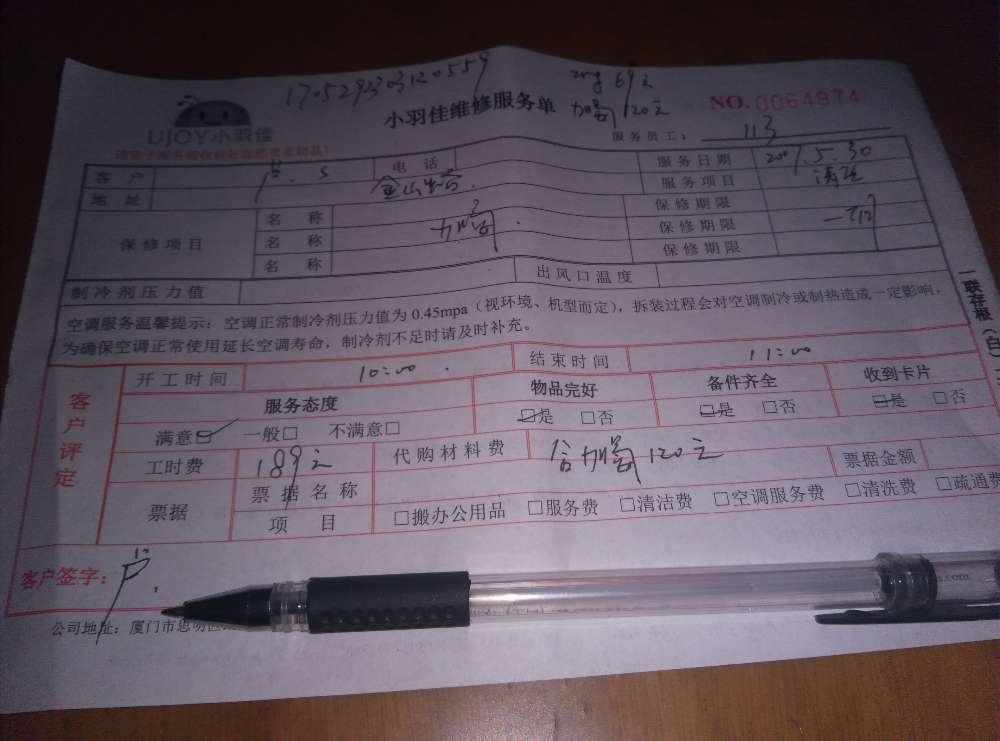 170529303120559
69元
UJOY小羽佳
小羽佳维修服务单
120元
NO.0064974
服务员工: 113
客户
电话
服务日期 5.30
地址 金山
服务项目
保修项目
名称
保修期限
名称
保修期限
名称
保修期限
制冷剂压力值
出风口温度
空调服务温馨提示: 空调正常制冷剂压力值为0.45mpa（视环境、机型而定），拆装过程会对空调制冷或制热造成一定影响，
为确保空调正常使用延长空调寿命，制冷剂不足时请及时补充。
一联存根（白）
客户评定
开工时间 10:00
结束时间 11:00
服务态度
物品完好
备件齐全
收到卡片
满意☑ 一般□ 不满意□
□是 □否
□是 □否
□是 □否
工时费 189元
代购材料费 含加 120元
票据金额
票据
票据名称
项目
□搬办公用品 □服务费 □清洁费 □空调服务费 □清洗费 □疏通费
客户签字:
公司地址: 厦门市思明区